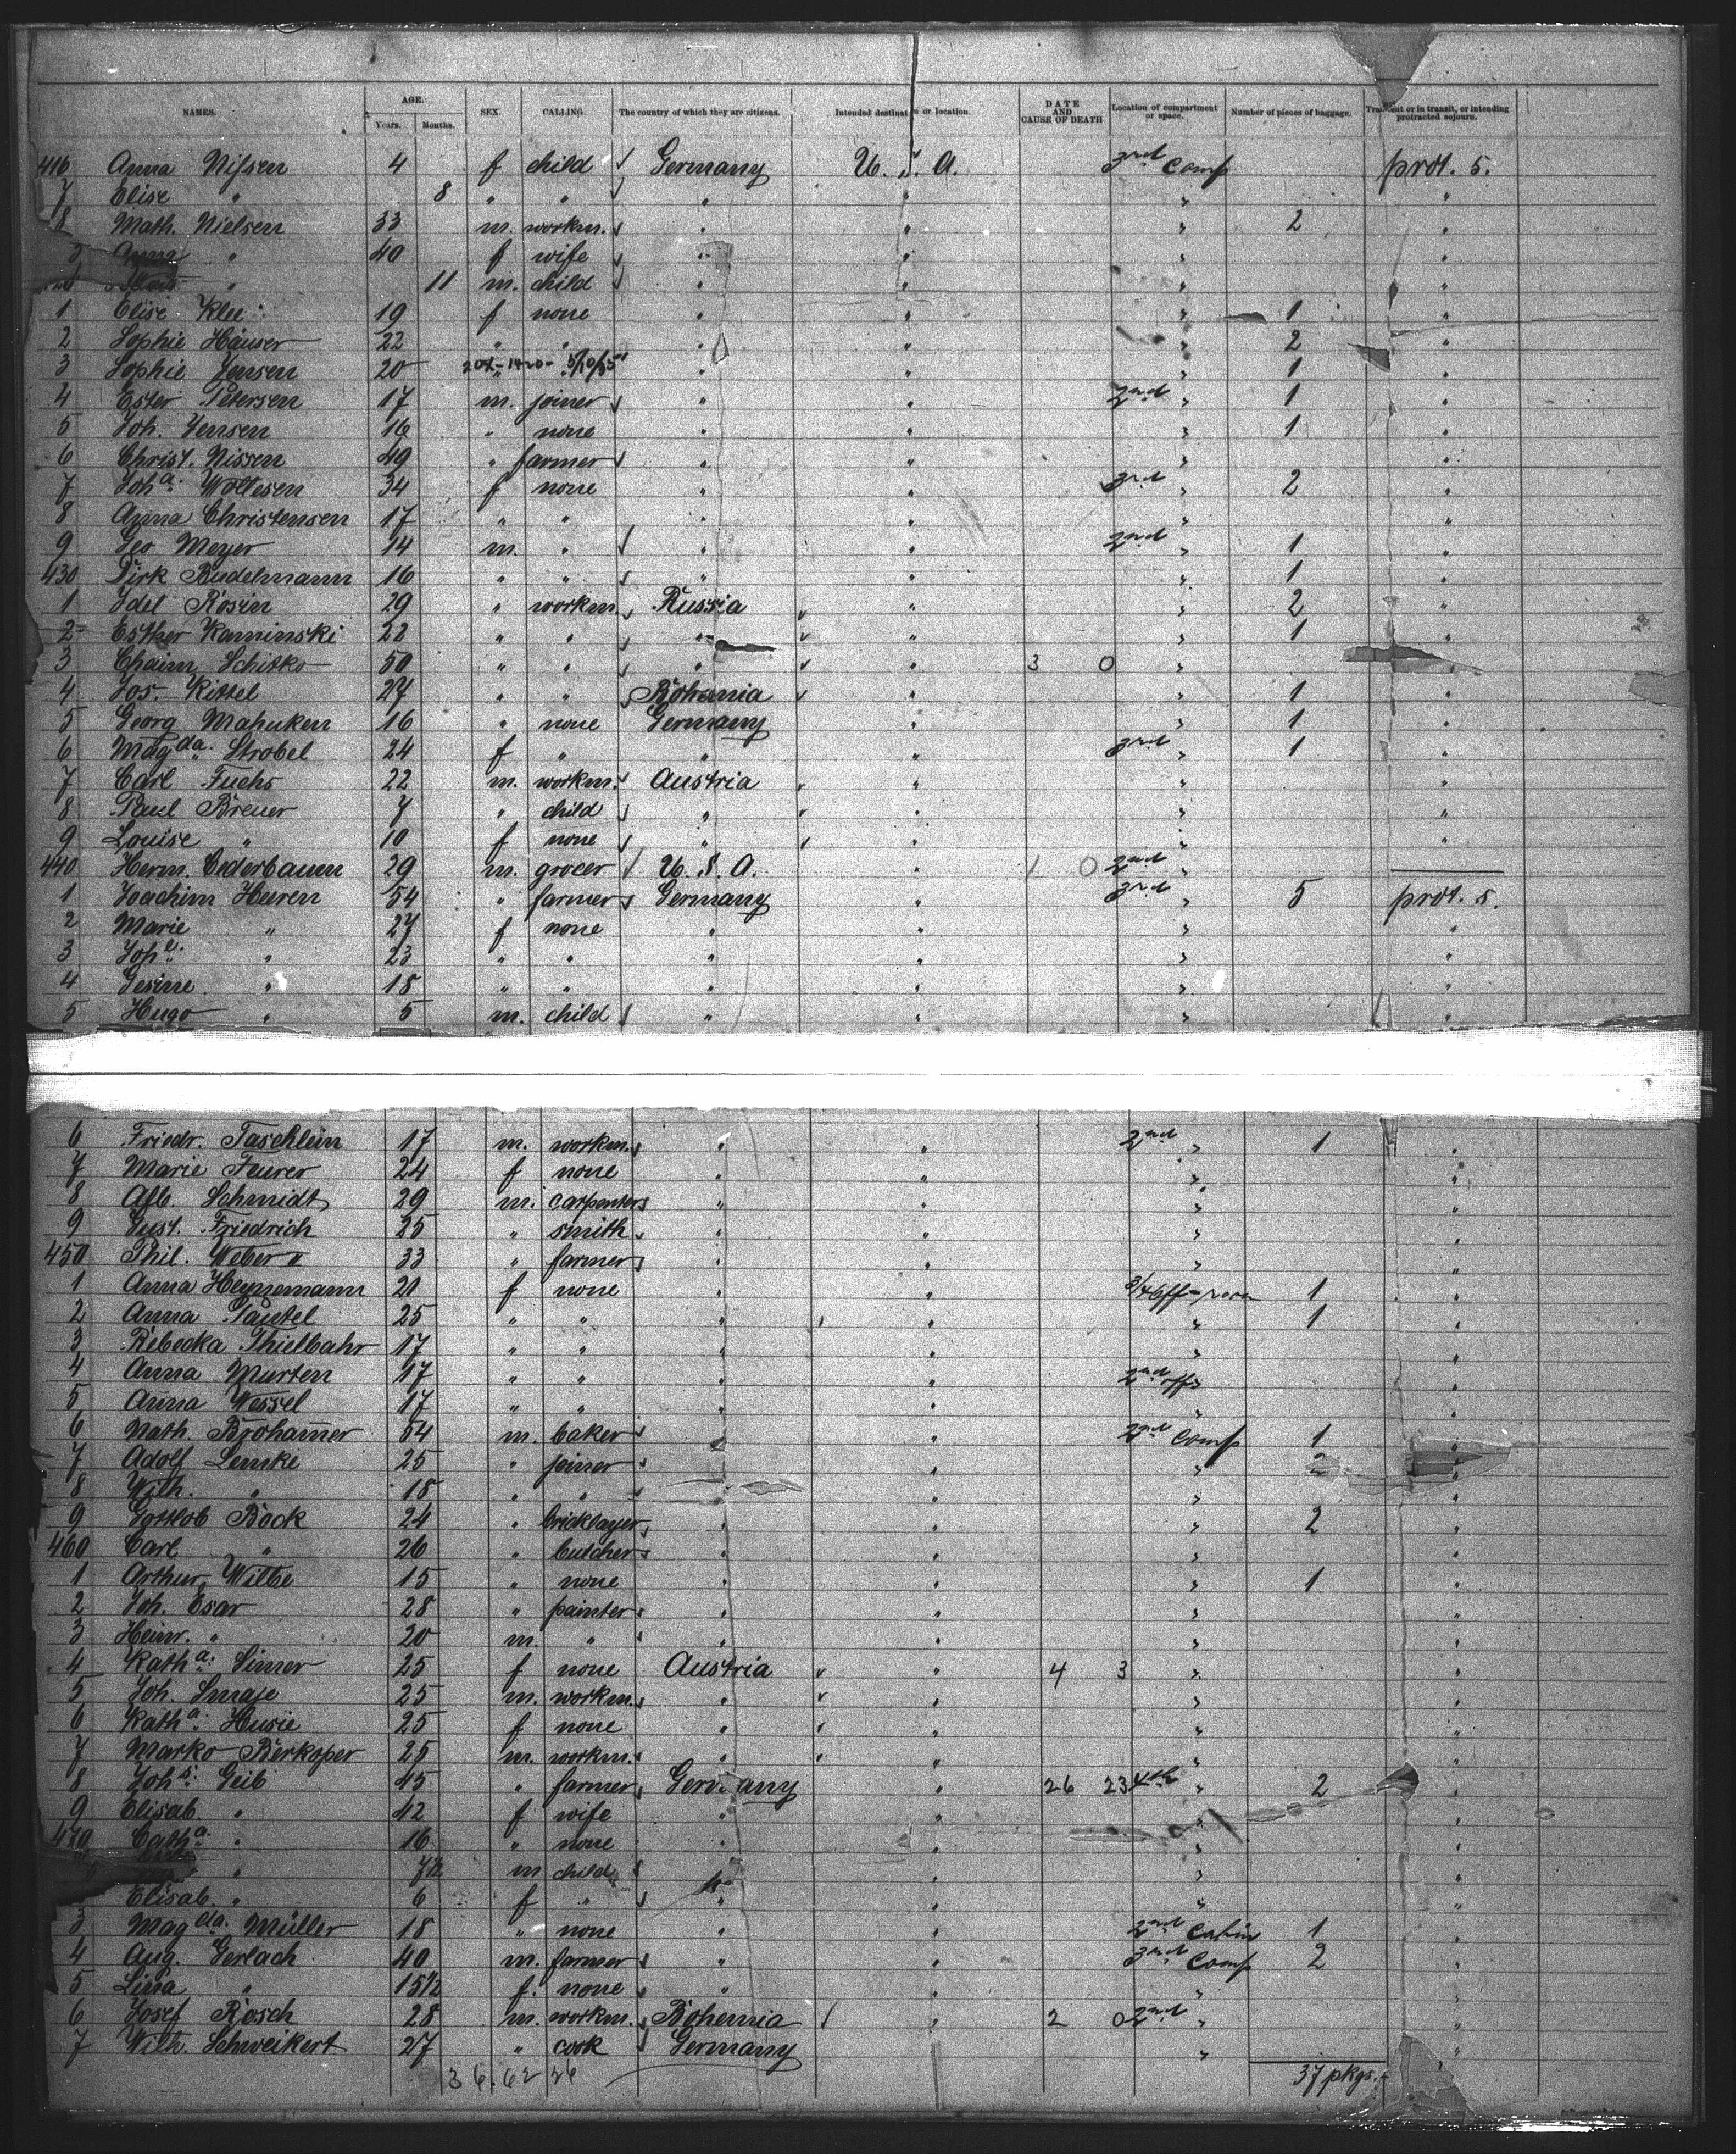 NAMES. AGE. SEX. CALLING. The country of which they are citizens. Intended destinat n or location. DATE AND CAUSE OF DEATH Location of compartment or space. Number of pieces of baggage. or in transit, or intending protracted sojourn.
Years. Months.
416 Anna Nissen 4 f child Germany U. S. A. 3rd Comp prot. s.
7 Elise " 8 " " " " " "
8 Math. Nielsen 33 m. workm. " " " 2 "
9 Anna " 40 f wife " " " "
" 11 m. child " " " "
1 Elise Klee 19 f none " " " 1 "
2 Sophie Häuser 22 " " " " " 2 "
3 Sophie Jensen 20 " " " " 1 "
4 Ester Petersen 17 m. joiner " " 2nd " 1 "
5 Joh. Jensen 16 " none " " " 1 "
6 Christ. Nissen 49 " farmer " " " "
7 Joha. Woltesen 34 f none " " 3rd " 2 "
8 Anna Christensen 17 " " " " " "
9 Geo Meyer 14 m. " " " 2nd " 1 "
430 Dirk Budelmann 16 " " " " " 1 "
1 Idel Rosin 29 " workm. Russia " " 2 "
2 Esther Kaminski 22 " " " " " 1 "
3 Chaim Schitko 50 " " " " 3 0 " "
4 Jos. Kittel 27 " " Bohemia " " 1 "
5 Georg Mahnken 16 " none Germany " " 1 "
6 Magda. Strobel 24 f " " " 3rd " 1 "
7 Carl Fuchs 22 m. workm. Austria " " "
8 Paul Breuer 7 " child " " " "
9 Louise " 10 f none " " " "
440 Herm. Cederbaum 29 m. grocer U. S. A. " 1 0 2nd "
1 Joachim Heeren 54 " farmer Germany " 3rd " 5 prot. s.
2 Marie " 27 f none " " " "
3 Johe. " 23 " " " " " "
4 Gesine " 18 " " " " " "
5 Hugo " 5 m. child " " " "
6 Friedr. Taschlein 17 m. workm. " " 2nd " 1 "
7 Marie Feurer 24 f none " " " "
8 Alb. Schmidt 29 m. carpenter " " " "
9 Gust. Friedrich 25 " smith " " " "
450 Phil. Weber 33 " farmer " " " "
1 Anna Heynemann 21 f none " " 1 "
2 Anna Pautel 25 " " " " " 1 "
3 Rebecka Thielbahr 17 " " " " " "
4 Anna Murten 17 " " " " 2nd "
5 Anna Wessel 17 " " " " " "
6 Math. Brohamer 54 m. baker " " 2nd Comp 1 "
7 Adolf Lemke 25 " joiner " " " 2 "
8 Wilh. " 18 " " " " " "
9 Gottlob Bock 24 " bricklayer " " " 2 "
460 Carl " 26 " butcher " " " "
1 Arthur Wilbe 15 " none " " " 1 "
2 Joh. Esar 28 " painter " " " "
3 Heinr. " 20 m. " " " " "
4 Katha. Simer 25 f none Austria " 4 3 " "
5 Joh. Smaje 25 m. workm. " " " "
6 Katha. Husie 25 f none " " " "
7 Marko Berkoper 25 m. workm. " " " "
8 Johs. Geib 45 " farmer Germany " 26 23 4th " 2 "
9 Elisab. " 42 f wife " " " "
470 Catha. " 16 " none " " " "
" m child " " "
Elisab. " 6 f " " " " "
3 Magda. Müller 18 " none " " 2nd Cabin 1 "
4 Aug. Gerlach 40 m. farmer " " 3rd Comp 2 "
5 Lina " f. none " " " "
6 Josef Rosch 28 m. workm. Bohemia " 2 0 2nd " "
7 Wilh. Schweikert 27 " cook Germany " "
37 pkgs.